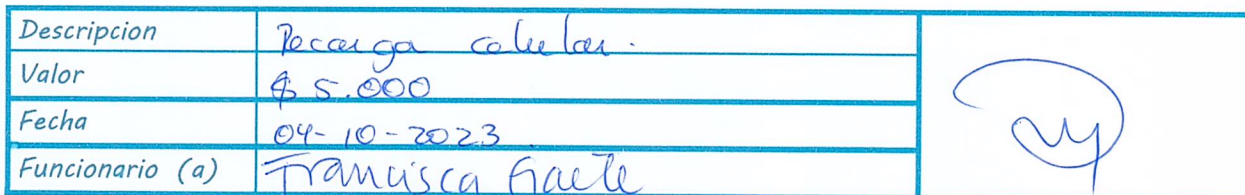 Descripcion Recarga celular.
Valor $ 5.000
Fecha 04-10-2023.
Funcionario (a) Francisca Gaete